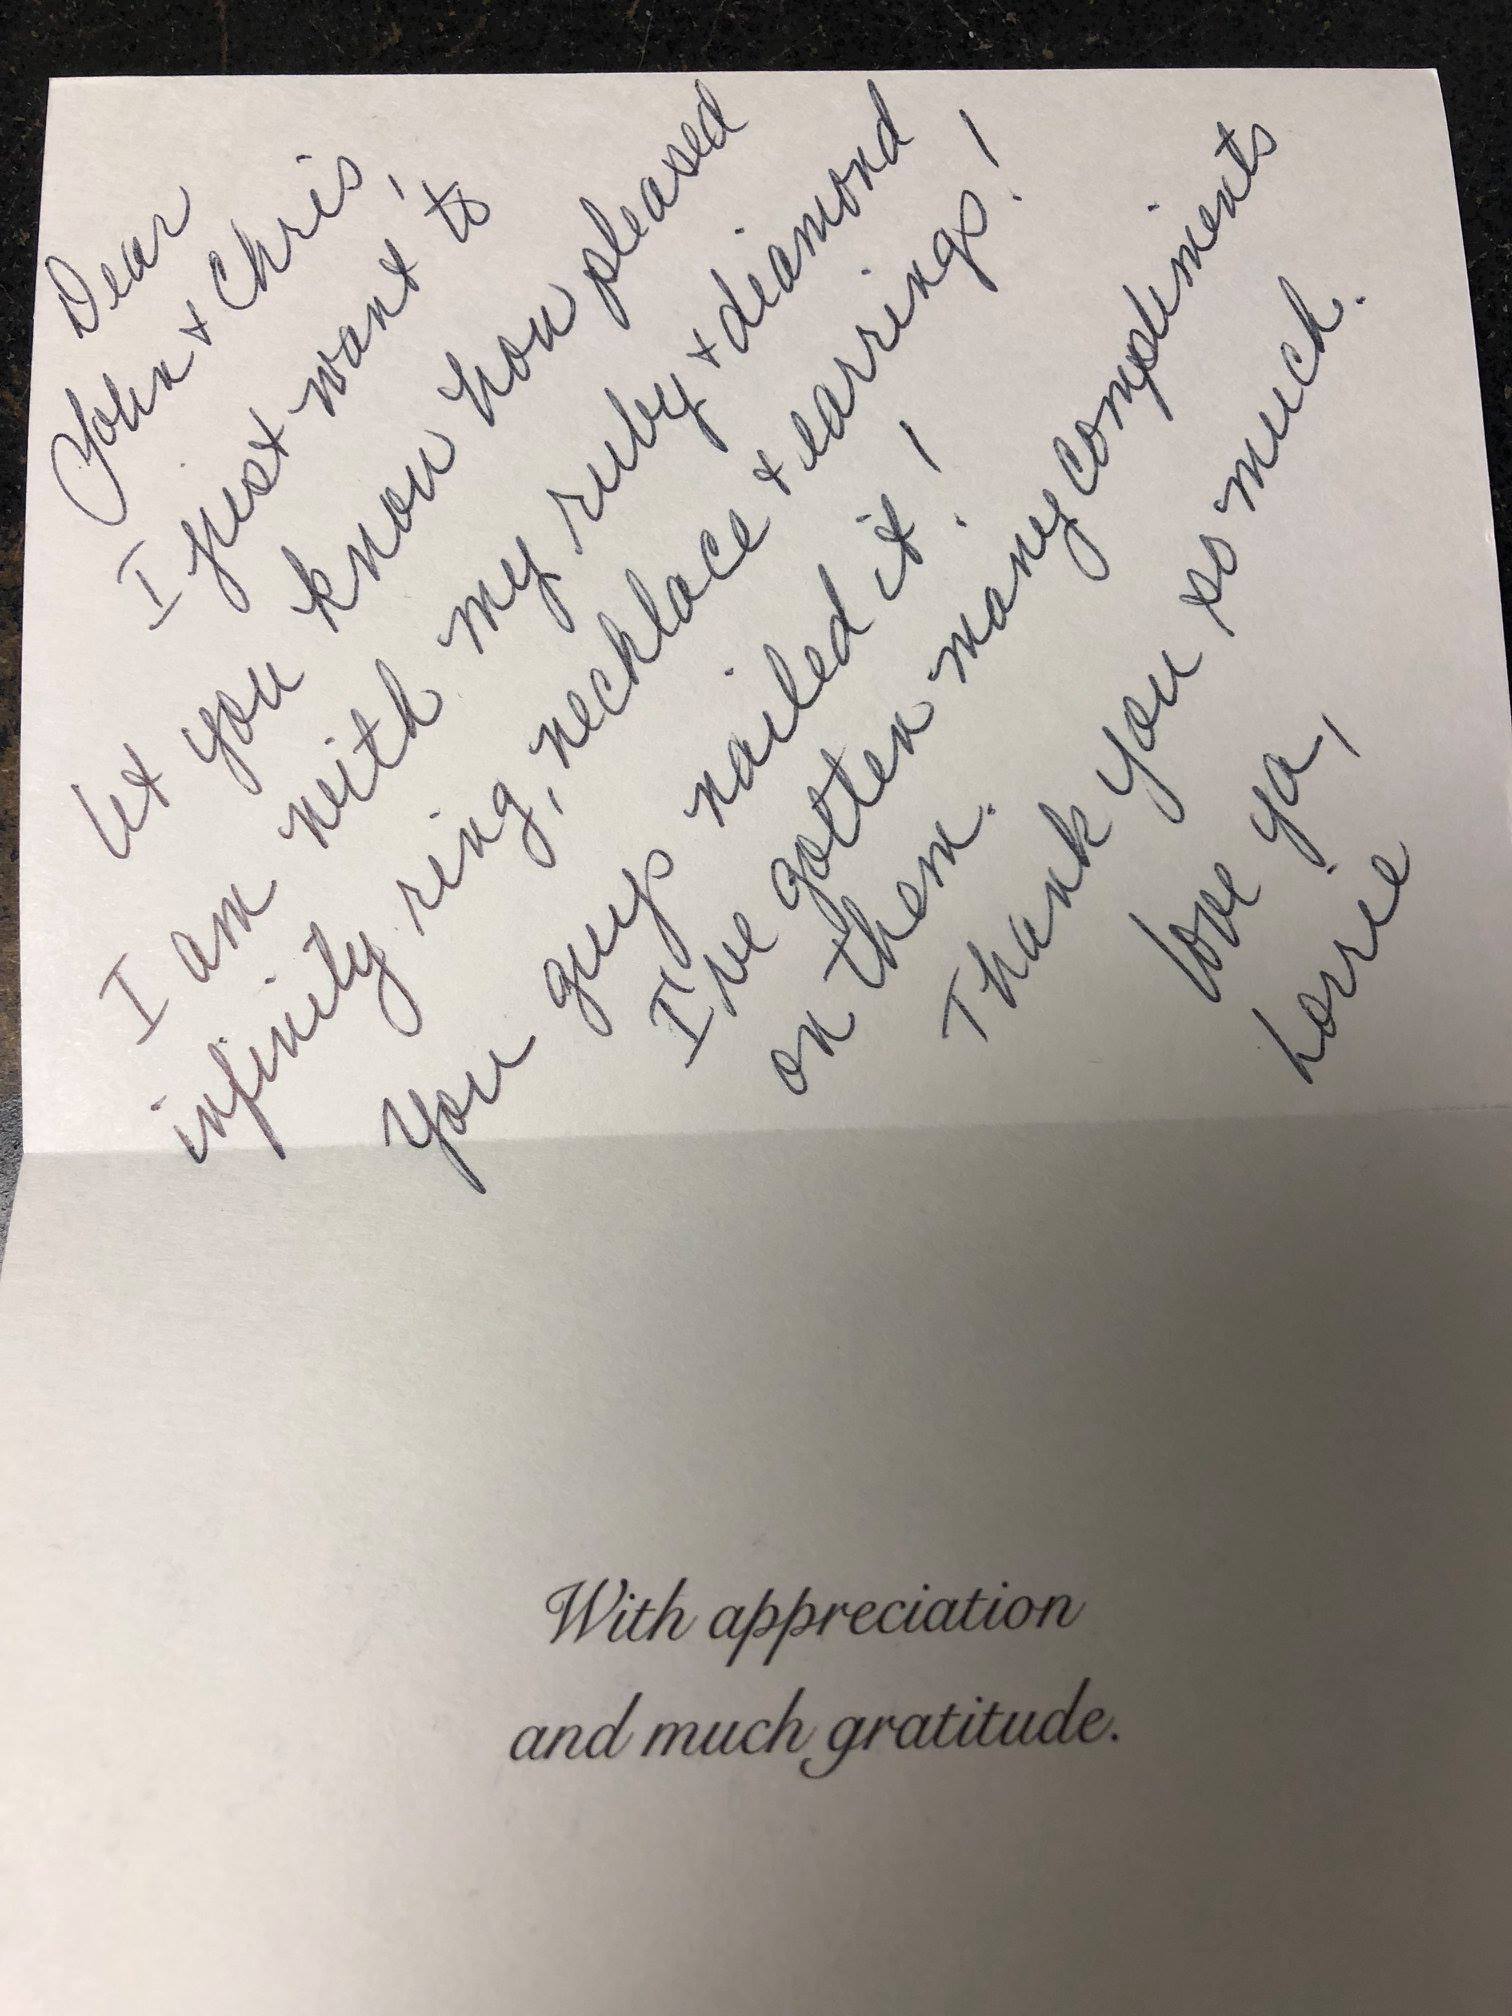 Dear
John + Chris,
I just want to
let you know how pleased
I am with my ruby + diamond
infinity ring, necklace + earrings!
You guys nailed it!
I've gotten many compliments
on them.
Thank you so much.
Love ya,
Lorrie
With appreciation
and much gratitude.